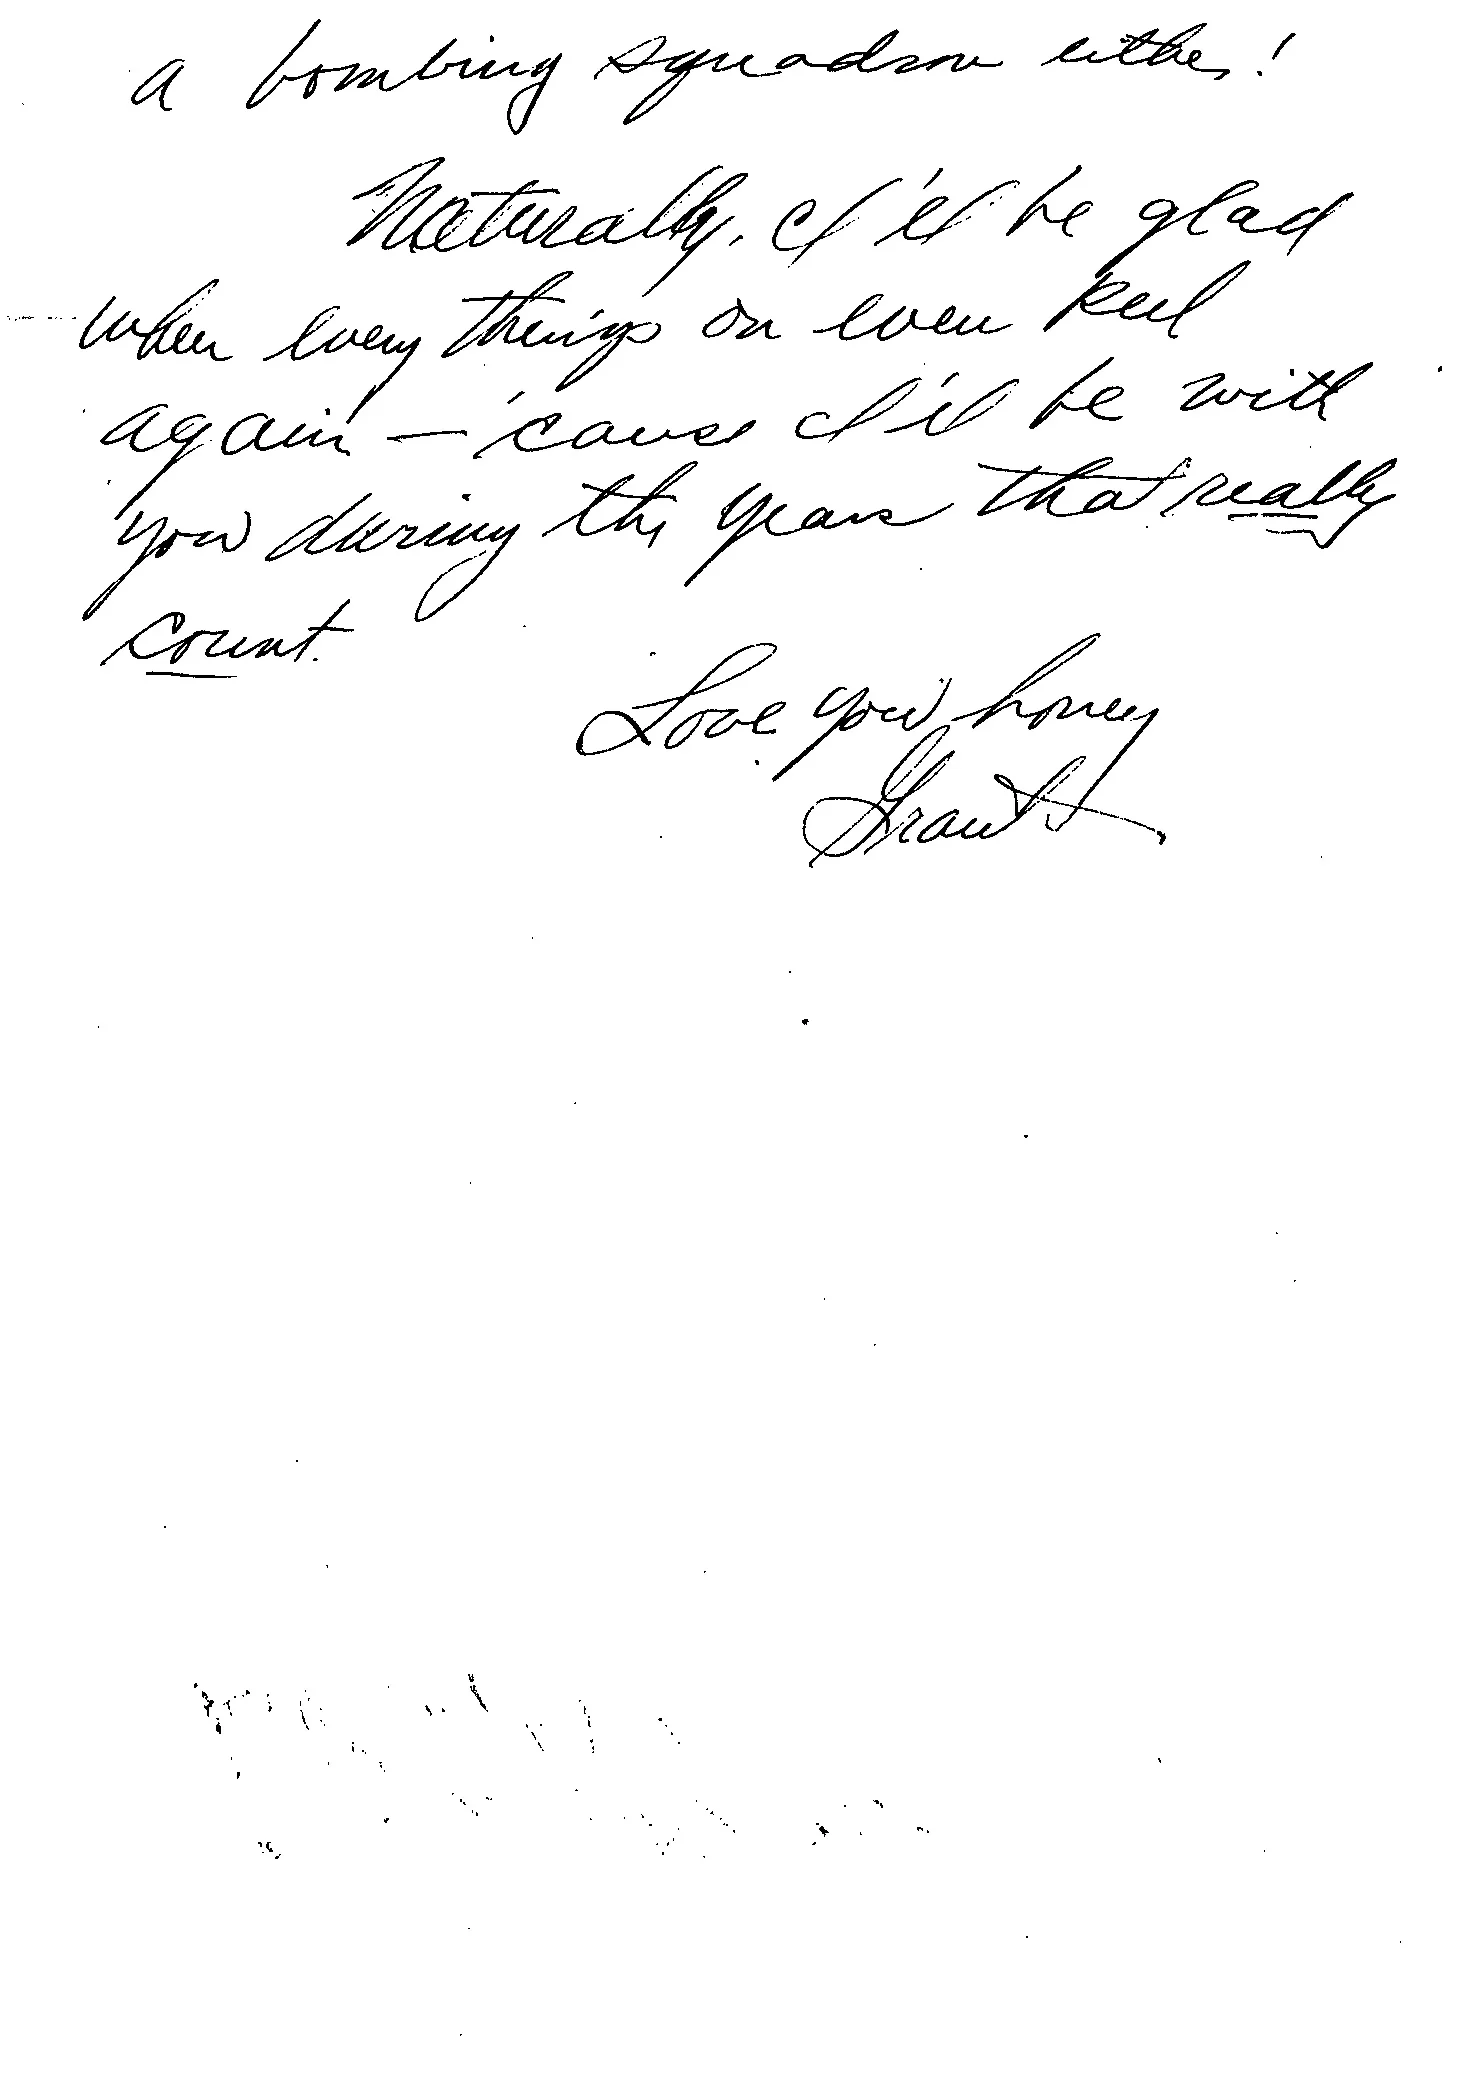 a bombing squadron either!
Naturally, I'll be glad
when every things on even keel
again — 'cause I'll be with
you during the years that really
count.
Love you honey
Grant